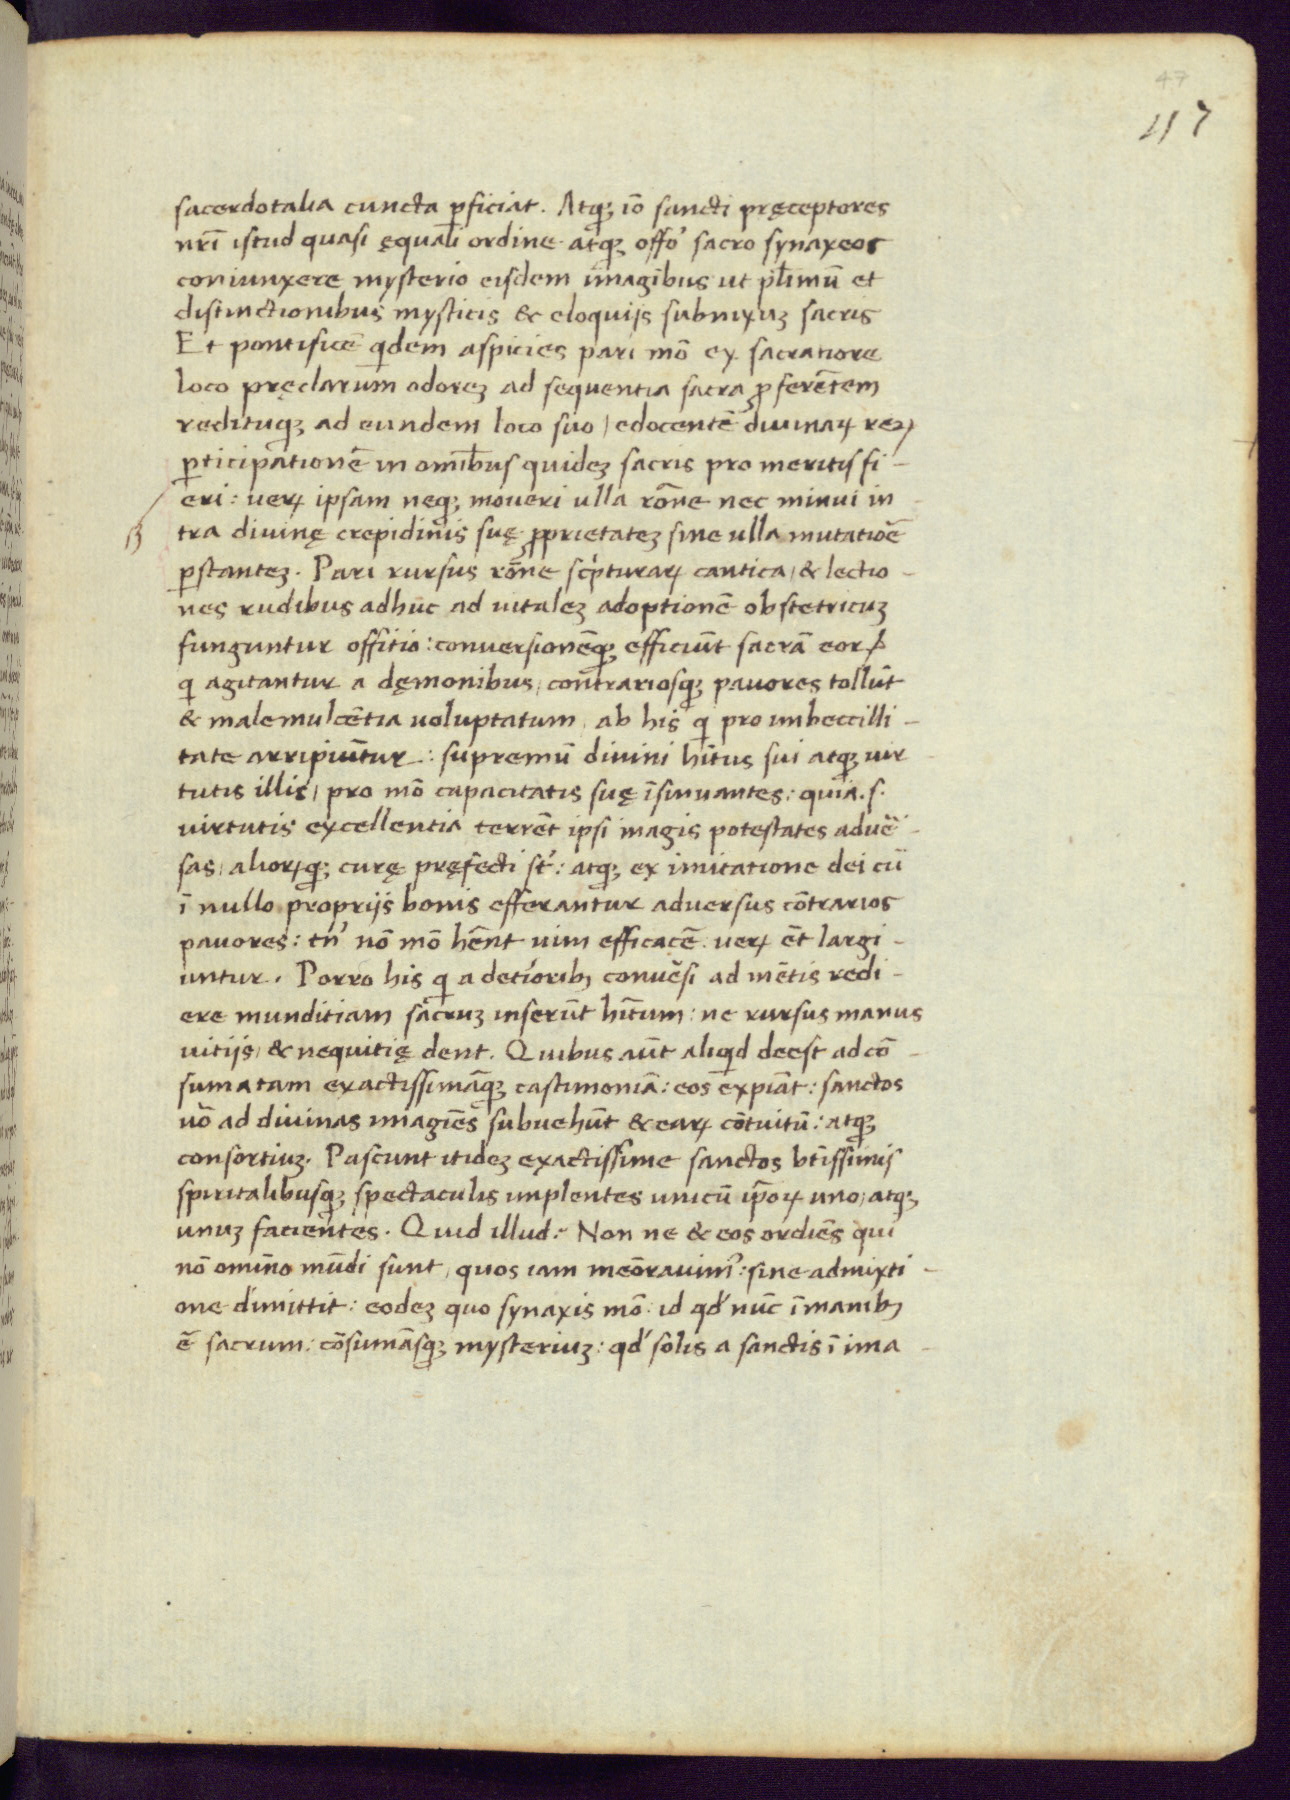 47
117
sacerdotalia cuncta ꝑficiat. Atqȝ iō sancti pręceptores
nr̄i istud quasi ęquali ordine atqȝ offo᾽ sacro synaxeos
coniunxere mysterio eisdem imagībus ut pl̄imū et
distinctionibus mysticis & eloquijs subnixuȝ sacris
Et pontificē qdem aspicies pari mō ex sacratiore
loco pręclarum odoreȝ ad sequentia sacra ꝓferēntem
redituqȝ ad eundem loco suo / edocentē diuinaꝝ reꝝ
ꝑticipationē in omībus quideȝ sacris pro meritis fi-
eri : ueꝝ ipsam neqȝ moueri ulla rōne nec minui in
tra diuinę crepidinis suę ꝓprietateȝ sine ulla mutatioē
ꝑstanteȝ. Pari rursus rōne scpturaꝝ cantica / & lectio-
nes rudibus adhuc ad uitaleȝ adoptionē obstetricuȝ
funguntur offitio : conuersionēqȝ efficiūt sacrā eoꝝ
q agitantur a dęmonibus / contrariosqȝ pauores tollūt
& malemulcētia uoluptatum / ab his q pro imbeccilli-
tate arripiūtur : supremū diuini hītus sui atqȝ uir
tutis illis / pro mō capacitatis suę īsinuantes : quia .s.
uirtutis excellentia terrēt ipsi magis potestates aduē-
sas / alioꝝqȝ curę pręfecti st᾽ : atqȝ ex imitatione dei cū
ī nullo proprijs bonis efferantur aduersus cōtrarios
pauores : tn᾽ nō mō hēnt uim efficacē ueꝝ ēt largi-
untur. Porro his q a deterioribȝ conuēsi ad mētis redi-
ere munditiam sacruȝ inserūt hītum : ne rursus manus
uitijs / & nequitię dent. Quibus aūt aliqd deest ad cō-
sumatam exactissimāqȝ castimoniā : eos expiāt : sanctos
uō ad diuinas imagiēs subuehūt & eaꝝ cōtuitū : atqȝ
consortiuȝ. Pascunt itideȝ exactissime sanctos btīssimis
spiritalibusqȝ spectaculis implentes unicū ip̄oꝝ uno / atqȝ
unuȝ facientes. Quid illud : Non ne & eos ordiēs qui
nō omīno mūdi sunt / quos iam meōrauim᾽ : sine admixti-
one dimittit : eodeȝ quo synaxis mō id qd᾽ nūc ī manibȝ
ē sacrum : cōsumāsqȝ mysteriuȝ : qd᾽ solis a sanctis ī ima-